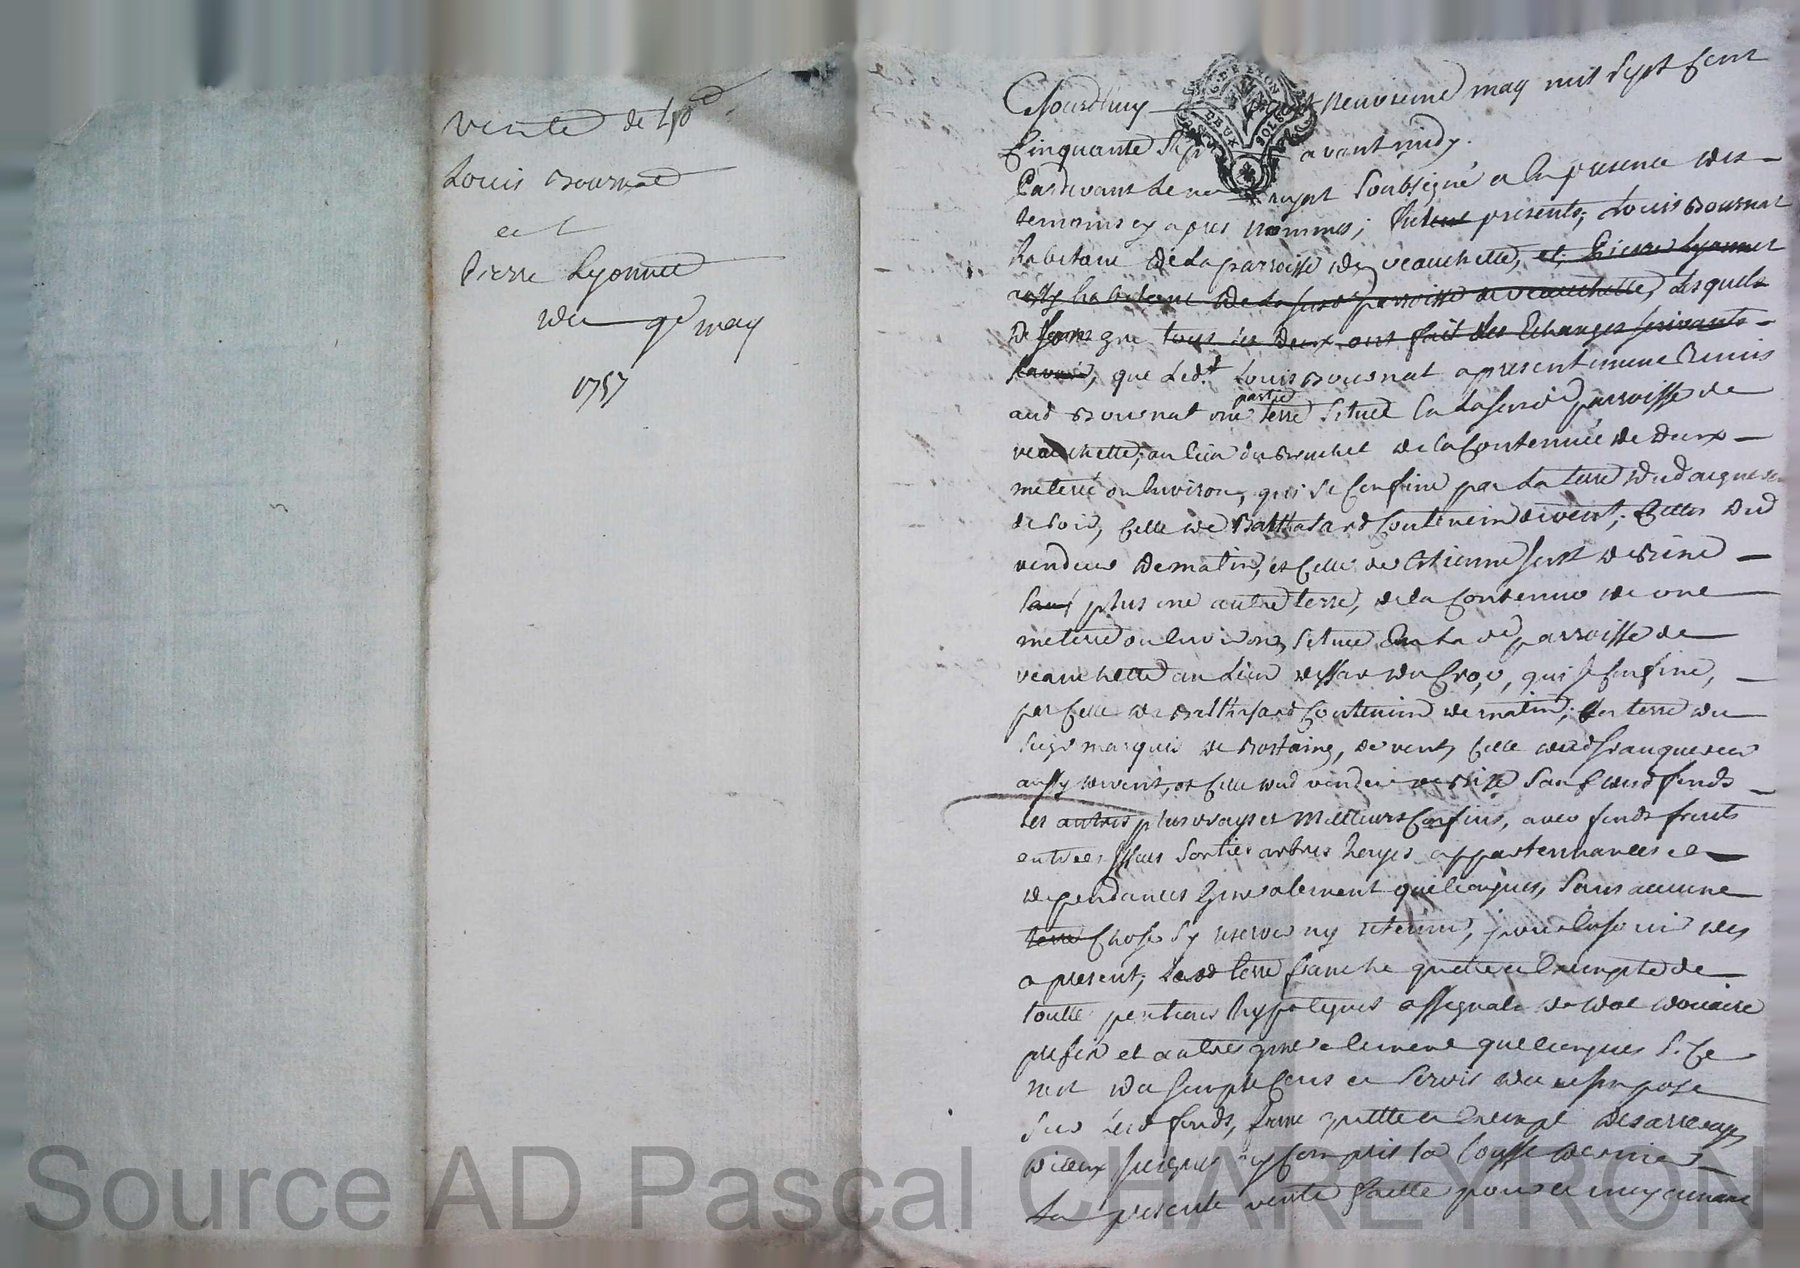 vente de
Louis Bournat
et
Pierre Lyonnet
du 9e may
1757
Cejourdhuy neuvieme may mil sept cent
Cinquante sept avant midy.
Pardevant le royal soubsigné et en presence des
temoins cy apres nommes; presents; Louis Bournat
habitant de la parroisse de veauchette, et Pierre Lyonnet
habitant de la parroisse de veauchette, Lesquels
que tous les deux ont fait des Echanges suivants
savoir, que led.t Louis Bournat a presentement Remis
aud Bournat une partie terre situee en la parroisse de
veauchette, au lieu du de la Contenue de deux
meterée ou Environ, qui se Confine par la terre
de soir, Celle de Balthazard de vent; Celles dud
vendeur de matin, et Celle de Estienne de Bize
sauf plus une autre terre, de la Contenue de une
meterée ou Environ, situee en lad parroisse de
veauchette au Lieu du Crot, qui se Confine,
par Celle de Balthazard de matin; la terre du
seigr marquis de Rostaing, de vent, Celle
aussy de vent, et Celle dud vendeur de Bize sauf desd fonds
les autres plus vrays et meilleurs Confins, avec fonds fruits
entrées issues sorties arbres hayes appartenances et
dependances generalement quelconques, sans aucune
terre Chose sy reserver ny retenir, pour en jouir des
a present; Lad terre franche quitte et Exempte de
toutte pentions hypoteques assignats de dot douaire
prefix et autres generalement quelconques si Ce
nest du simple Cens et servis du et impose
sur lesd fonds, franc quitte et Exempt des arrerages
diceux jusques y Compris la Cosse derniere
La presente vente faitte pour et moyennant
Source AD Pascal CHAREYRON